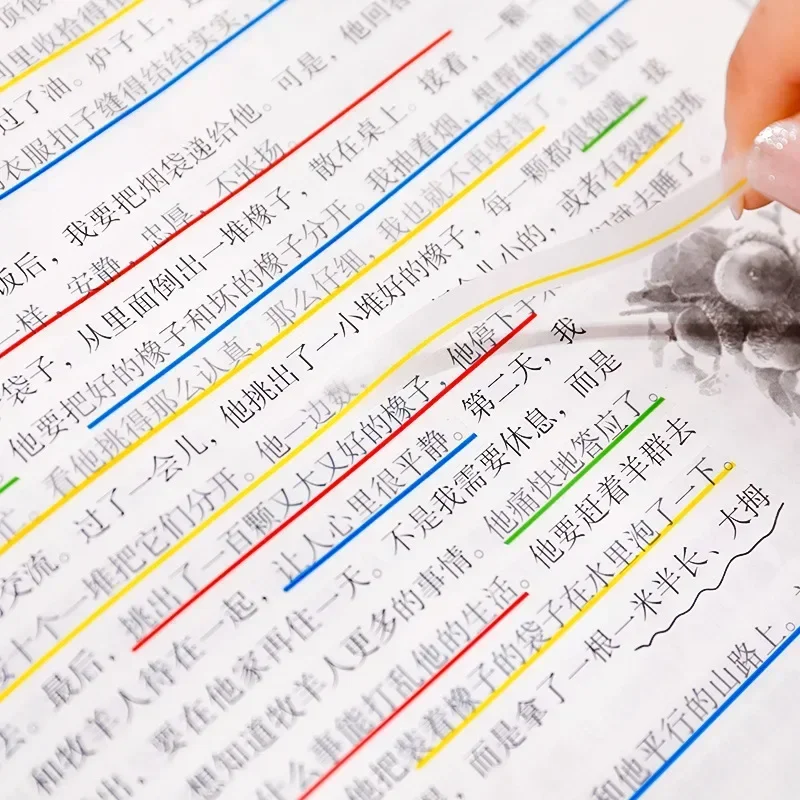 间里收拾得很
过了油。炉子上，
衣服扣子缝得结结实实，
饭后，我要把烟袋递给他。可是，他回答
一样，安静，忠厚，不张扬。
袋子，从里面倒出一堆橡子，散在桌上。接着，一颗一
他要把好的橡子和坏的橡子分开。我抽着烟，想帮他挑，但
忙。看他挑得那么认真，那么仔细，我也就不再坚持了。这就是
交流。过了一会儿，他挑出了一小堆好的橡子，每一颗都很饱满。接
按十个一堆把它们分开。他一边数， 个儿小的，或者有裂缝的拣
去。最后，挑出了一百颗又大又好的橡子，他停下手 们就去睡了。
和牧羊人待在一起，让人心里很平静。第二天，我
出，要在他家再住一天。不是我需要休息，而是
想知道牧羊人更多的事情。他痛快地答应了。
什么事能打乱他的生活。他要赶着羊群去
他把装着橡子的袋子在水里泡了一下。
，而是拿了一根一米半长、大拇
和他平行的山路上。